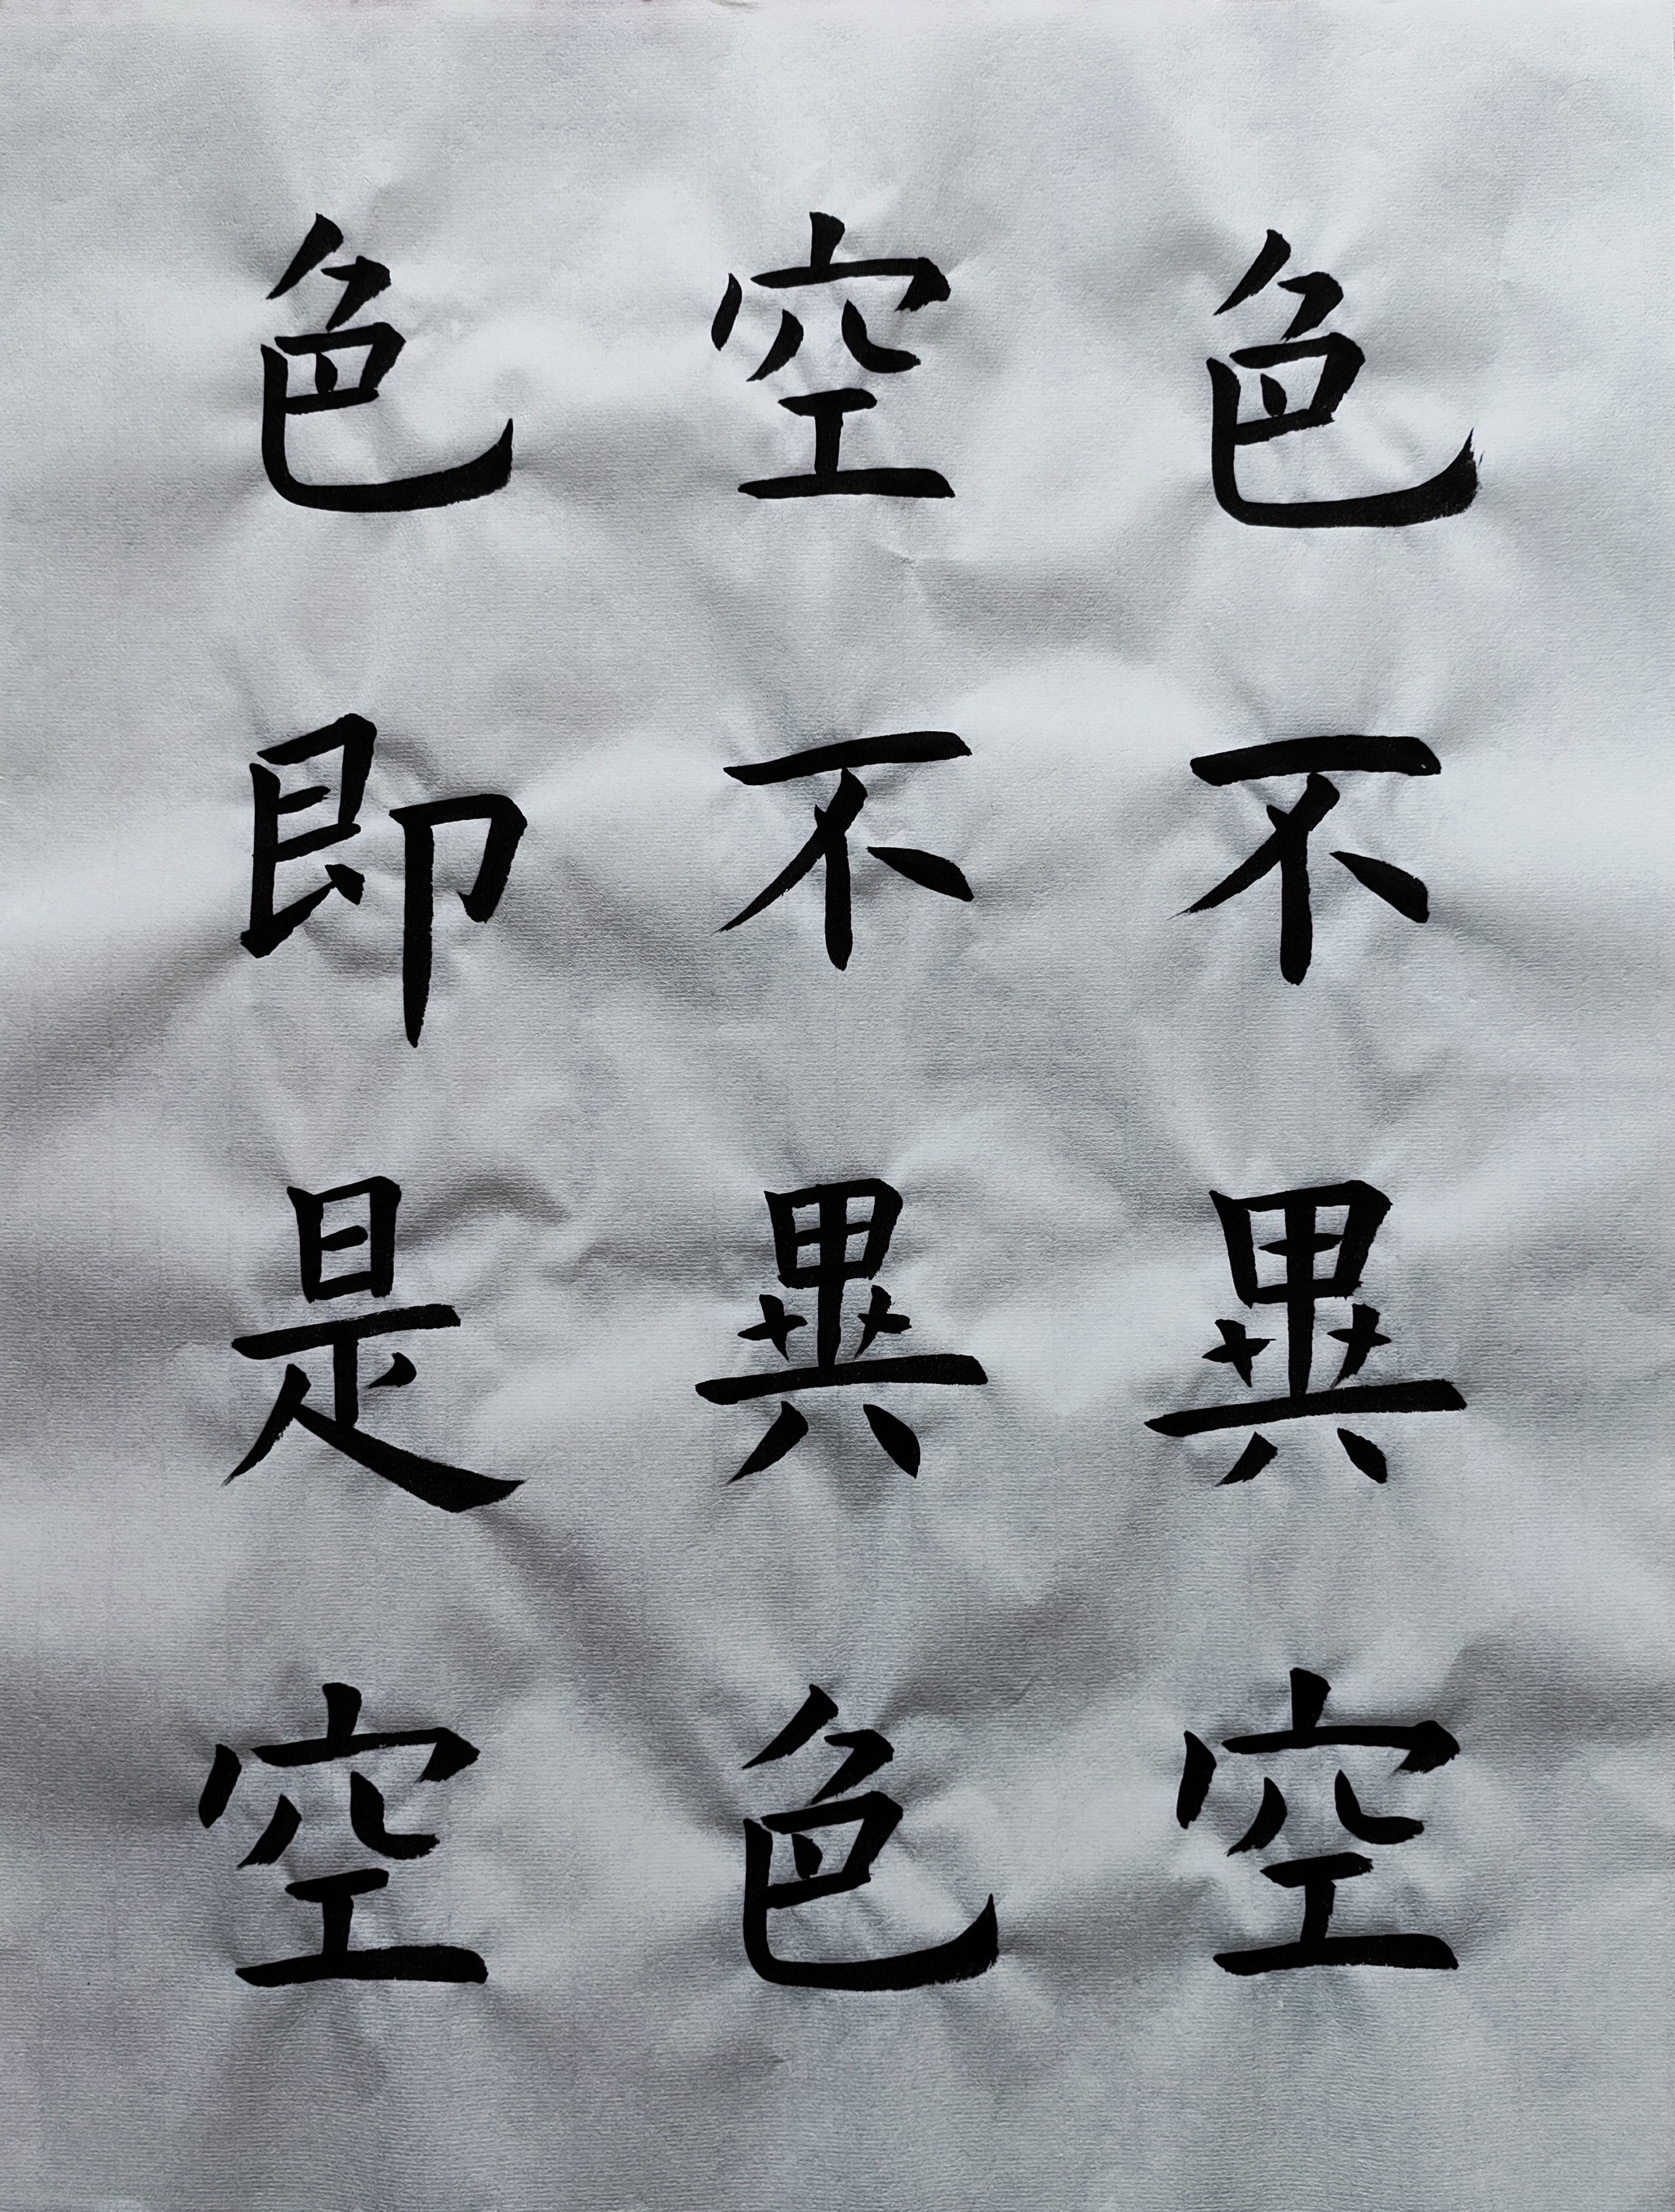 色不異空
空不異色
色即是空